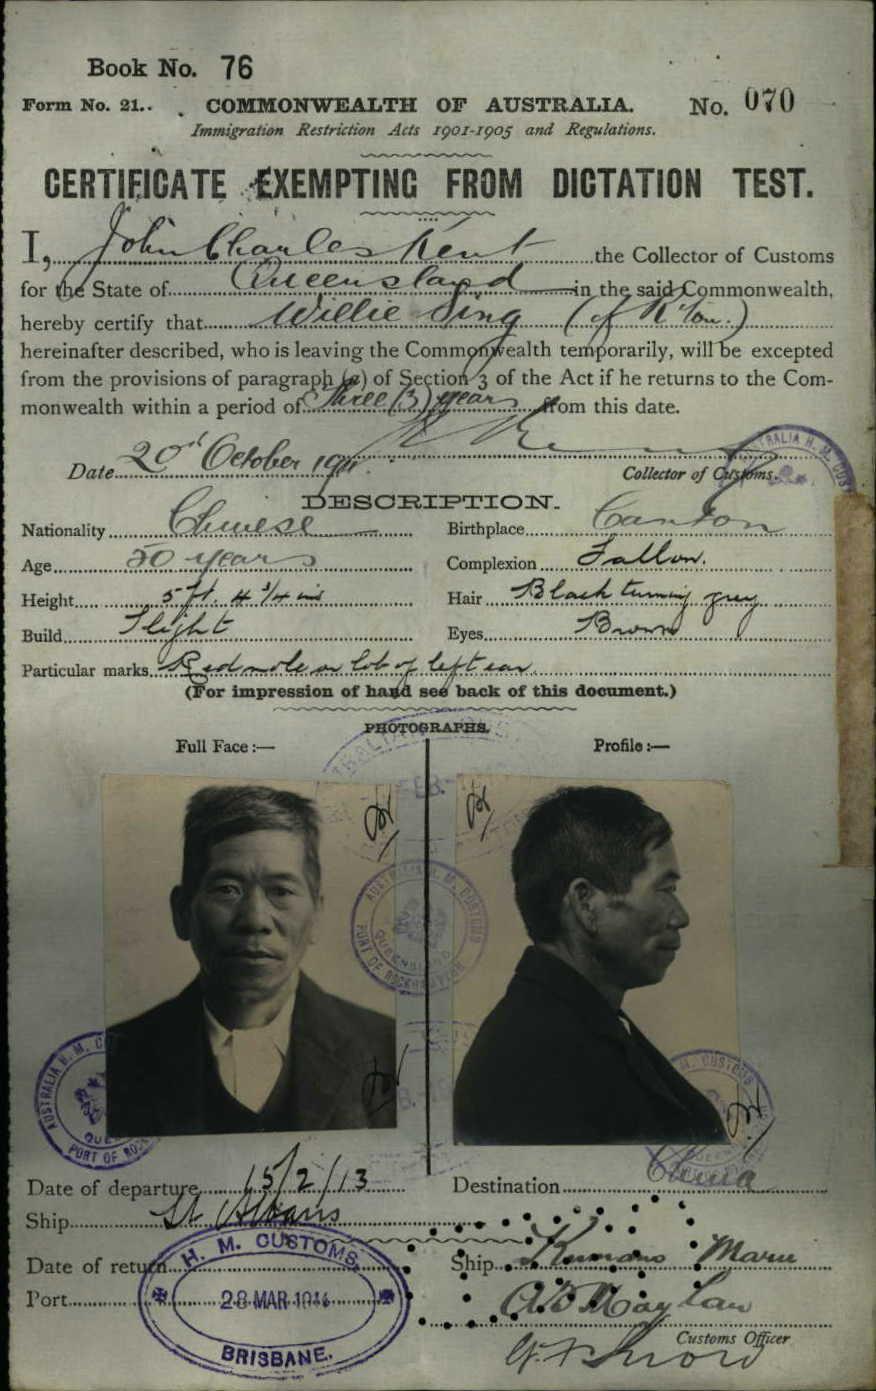 Book No. 76
Form No. 21.. COMMONWEALTH OF AUSTRALIA. No. 070
Immigration Restriction Acts 1901-1905 and Regulations.
CERTIFICATE EXEMPTING FROM DICTATION TEST.
I, John Charles Kent the Collector of Customs
for the State of Queensland in the said Commonwealth,
hereby certify that Willie Sing (of R'ton.)
hereinafter described, who is leaving the Commonwealth temporarily, will be excepted
from the provisions of paragraph (a) of Section 3 of the Act if he returns to the Com-
monwealth within a period of Three (3) years from this date.
Date 20th October 191
Collector of Customs.
DESCRIPTION.
Nationality Chinese Birthplace Canton
Age 50 years Complexion Sallow.
Height 5 ft. 4 3/4 ins Hair Black turning grey
Build Slight Eyes Brown
Particular marks Red mole on lob of left ear
(For impression of hand see back of this document.)
PHOTOGRAPHS.
Full Face :— Profile :—
AUSTRALIA H. M. CUSTOMS
QUEENSLAND
PORT OF ROCKHAMPTON
Date of departure 15/2/13 Destination China
Ship St Albans
Date of return Ship Kumano Maru
Port
H. M. CUSTOMS
28 MAR 1914
BRISBANE.
Customs Officer